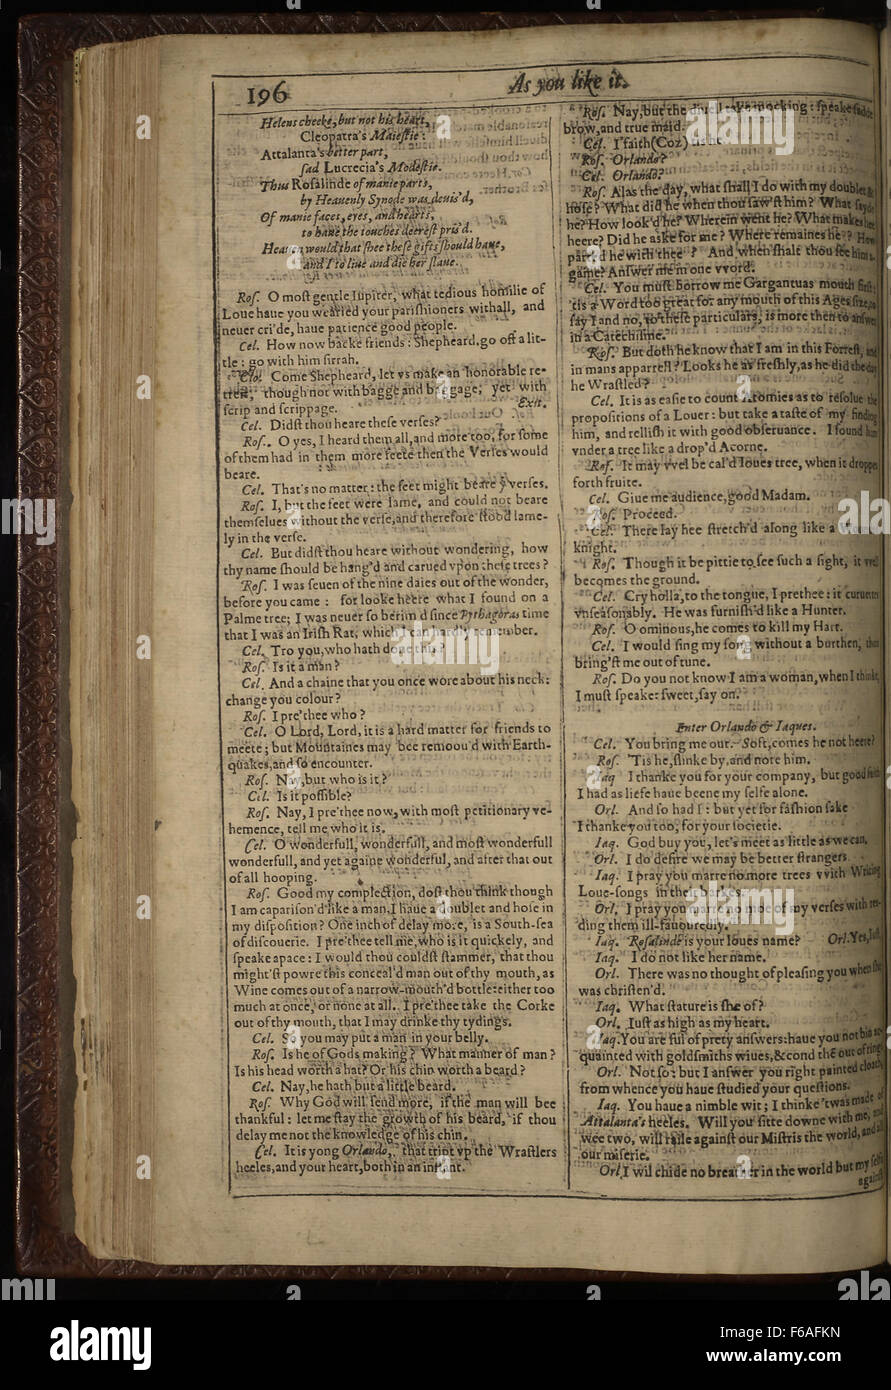 196
As you like it.
Helens cheeke, but not his heart,
Cleopatra's Maiestie:
Attalanta's better part,
sad Lucrecia's Modestie.
Thus Rosalinde of manie parts,
by Heauenly Synode was deuis'd,
Of manie faces, eyes, and hearts,
to haue the touches deerest pris'd.
Heauen would that shee these gifts should haue,
and I to liue and die her slaue.
Ros. O most gentle Iupiter, what tedious homilie of
Loue haue you wearied your parishioners withall, and
neuer cri'de, haue patience good people.
Cel. How now backe friends: Shepheard, go off a lit-
tle: go with him sirrah.
Clo. Come Shepheard, let vs make an honorable re-
treit, though not with bagge and baggage, yet with
scrip and scrippage. Exit.
Cel. Didst thou heare these verses?
Ros. O yes, I heard them all, and more too, for some
of them had in them more feete then the Verses would
beare.
Cel. That's no matter: the feet might beare ẏ verses.
Ros. I, but the feet were lame, and could not beare
themselues without the verse, and therefore stood lame-
ly in the verse.
Cel. But didst thou heare without wondering, how
thy name should be hang'd and carued vpon these trees?
Ros. I was seuen of the nine daies out of the wonder,
before you came: for looke heere what I found on a
Palme tree; I was neuer so berim'd since Pythagoras time
that I was an Irish Rat, which I can hardly remember.
Cel. Tro you, who hath done this?
Ros. Is it a man?
Cel. And a chaine that you once wore about his neck:
change you colour?
Ros. I pre'thee who?
Cel. O Lord, Lord, it is a hard matter for friends to
meete; but Mountaines may bee remoou'd with Earth-
quakes, and so encounter.
Ros. Nay, but who is it?
Cel. Is it possible?
Ros. Nay, I pre'thee now, with most petitionary ve-
hemence, tell me who it is.
Cel. O wonderfull, wonderfull, and most wonderfull
wonderfull, and yet againe wonderful, and after that out
of all hooping.
Ros. Good my complection, dost thou think though
I am caparison'd like a man, I haue a doublet and hose in
my disposition? One inch of delay more, is a South-sea
of discouerie. I pre'thee tell me, who is it quickely, and
speake apace: I would thou couldst stammer, that thou
might'st powre this conceal'd man out of thy mouth, as
Wine comes out of a narrow-mouth'd bottle: either too
much at once, or none at all. I pre'thee take the Corke
out of thy mouth, that I may drinke thy tydings.
Cel. So you may put a man in your belly.
Ros. Is he of Gods making? What manner of man?
Is his head worth a hat? Or his chin worth a beard?
Cel. Nay, he hath but a little beard.
Ros. Why God will send more, if the man will bee
thankful: let me stay the growth of his beard, if thou
delay me not the knowledge of his chin.
Cel. It is yong Orlando, that tript vp the Wrastlers
heeles, and your heart, both in an instant.
Ros. Nay, but the diuell take mocking: speake sadde
brow, and true maid.
Cel. I'faith (Coz) tis he.
Ros. Orlando?
Cel. Orlando?
Ros. Alas the day, what shall I do with my doublet &
hose? What did he when thou saw'st him? What sayde
he? How look'd he? Wherein went he? What makes hee
heere? Did he aske for me? Where remaines he? How
parted he with thee? And when shalt thou see him a-
gaine? Answer me in one vvord.
Cel. You must borrow me Gargantuas mouth first:
'tis a Word too great for any mouth of this Ages size, to
say I and no, to these particulars, is more then to answer
in a Catechisme.
Ros. But doth he know that I am in this Forrest, and
in mans apparrell? Looks he as freshly, as he did the day
he Wrastled?
Cel. It is as easie to count Atomies as to resolue the
propositions of a Louer: but take a taste of my finding
him, and rellish it with good obseruance. I found him
vnder a tree like a drop'd Acorne.
Ros. It may vvel be cal'd Ioues tree, when it droppes
forth fruite.
Cel. Giue me audience, good Madam.
Ros. Proceed.
Cel. There lay hee stretch'd along like a
knight.
Ros. Though it be pittie to see such a sight, it vvell
becomes the ground.
Cel. Cry holla, to the tongue, I prethee: it curuettes
vnseasonably. He was furnish'd like a Hunter.
Ros. O ominous, he comes to kill my Hart.
Cel. I would sing my song without a burthen, thou
bring'st me out of tune.
Ros. Do you not know I am a woman, when I thinke,
I must speake: sweet, say on.
Enter Orlando & Iaques.
Cel. You bring me out. Soft, comes he not heere?
Ros. 'Tis he, slinke by, and note him.
Iaq. I thanke you for your company, but good faith
I had as liefe haue beene my selfe alone.
Orl. And so had I: but yet for fashion sake
I thanke you too, for your societie.
Iaq. God buy you, let's meet as little as we can.
Orl. I do desire we may be better strangers.
Iaq. I pray you marre no more trees vvith Writing
Loue-songs in their barkes.
Orl. I pray you marre no moe of my verses with rea-
ding them ill-fauouredly.
Iaq. Rosalinde is your loues name? Orl. Yes, Iust.
Iaq. I do not like her name.
Orl. There was no thought of pleasing you when she
was christen'd.
Iaq. What stature is she of?
Orl. Iust as high as my heart.
Iaq. You are ful of prety answers: haue you not bin ac-
quainted with goldsmiths wiues, & cond thē out of rings
Orl. Not so: but I answer you right painted cloath,
from whence you haue studied your questions.
Iaq. You haue a nimble wit; I thinke 'twas made of
Attalanta's heeles. Will you sitte downe with me, and
wee two, will raile against our Mistris the world, and all
our miserie.
Orl. I wil chide no breather in the world but my selfe
against
alamy
Image ID: F6AFKN
www.alamy.com